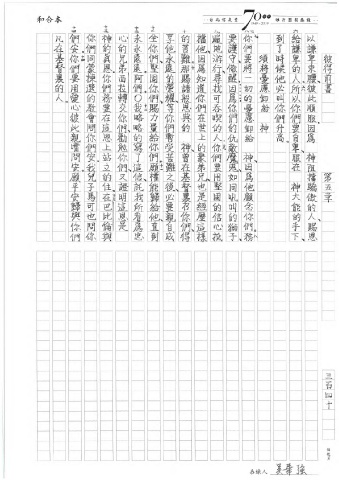 和合本
70
彼得前書 第五章
以謙卑束腰彼此順服因爲 神阻擋驕傲的人賜恩
給謙卑的人所以你們要自卑服在 神大能的手下
到了時候他必叫你們升高
須將憂慮卸給 神
你們要將一切的憂慮卸給 神因為他顧念你們務
要謹守儆醒因為你們的仇敵魔鬼如同吼叫的獅子
遍地游行尋找可吞吃的人你們要用堅固的信心抵
擋他因為知道你們在世上的衆弟兄也是經歷這樣
的苦難那賜諸般恩典的 神曾在基督裏召你們得
享他永遠的榮耀等你們暫受苦難之後必要親自成
全你們堅固你們賜力量給你們願權能歸給他直到
永永遠遠阿們○我略略的寫了這信託我所看為忠
心的兄弟西拉轉交你們勸勉你們又證明這恩是
神的真恩你們務要在這恩上站立的住在巴比倫與
你們同蒙揀選的教會問你們安我兒子馬可也問你
們安你們要用愛心彼此親嘴問安願平安歸與你們
凡在基督裏的人
三百四十